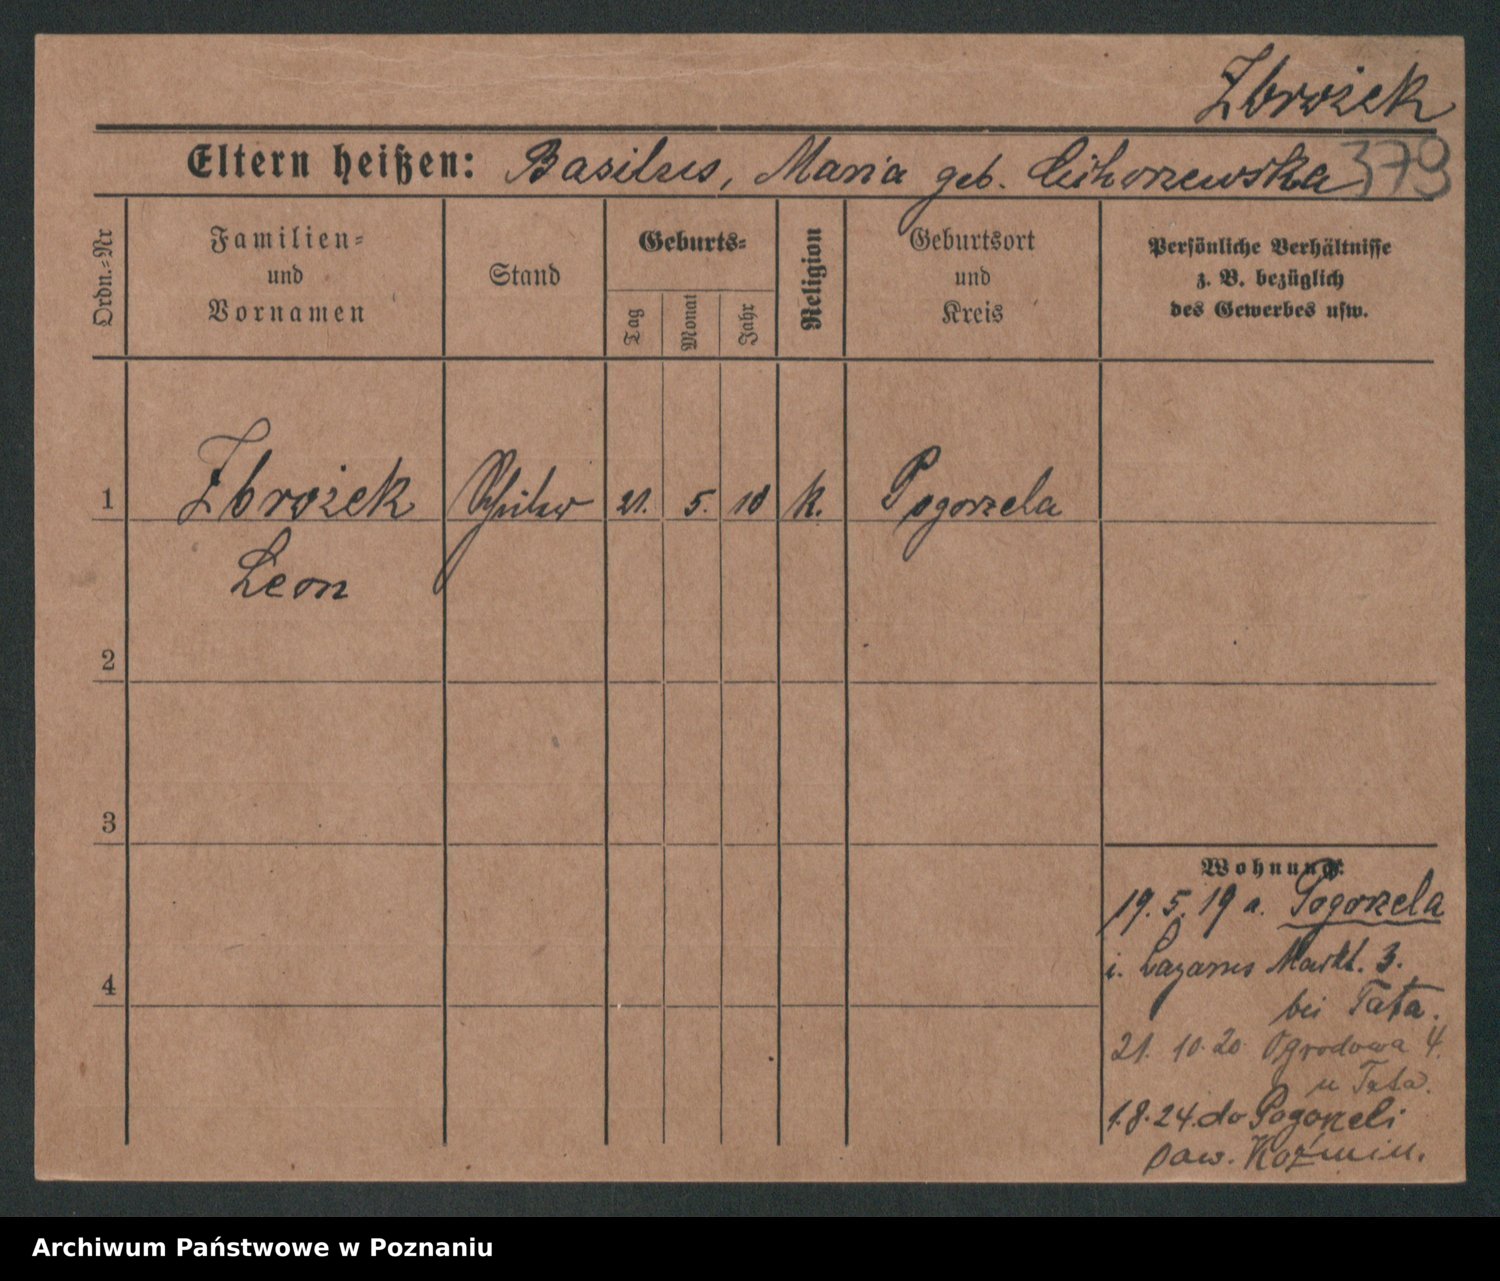 Zbrożek
Eltern heißen: Basilius, Maria geb. Cichorzewska 379
Ordn.=Nr
Familien=
und
Vornamen
Stand
Geburts=
Tag
Monat
Jahr
Religion
Geburtsort
und
Kreis
Persönliche Verhältnisse
z. B. bezüglich
des Gewerbes usw.
1 Zbrożek Schüler 21. 5. 10 k. Pogorzela
Leon
2
3
4
Wohnung:
19. 5. 19 a. Pogorzela
i. Lazarus Markt. 3.
bei Tata.
21. 10. 20 Ogrodowa 4.
u Tata.
1.8.24. do Pogorzeli
pow. Koźmin.
Archiwum Państwowe w Poznaniu